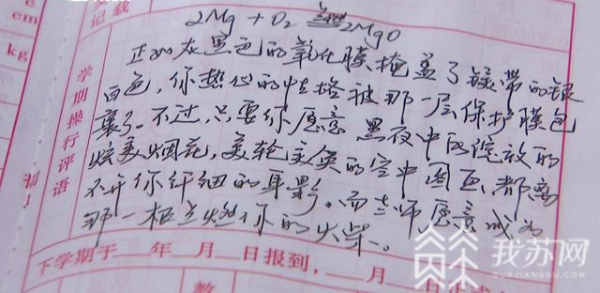 cm
kg
记载
2Mg + O₂ 点燃 2MgO
正如灰黑色的氧化膜掩盖了镁带的银
白色,你热心的性格被那一层保护膜包
裹了。不过,只要你愿意,黑夜中所绽放的
炫美烟花,美轮美奂的空中图画,都离
不开你纤细的身影。而老师愿意成为
那一根点燃你的火柴。
学期操行评语
下学期于 年 月 日报到, 月
我苏网
OURJIANGSU.COM